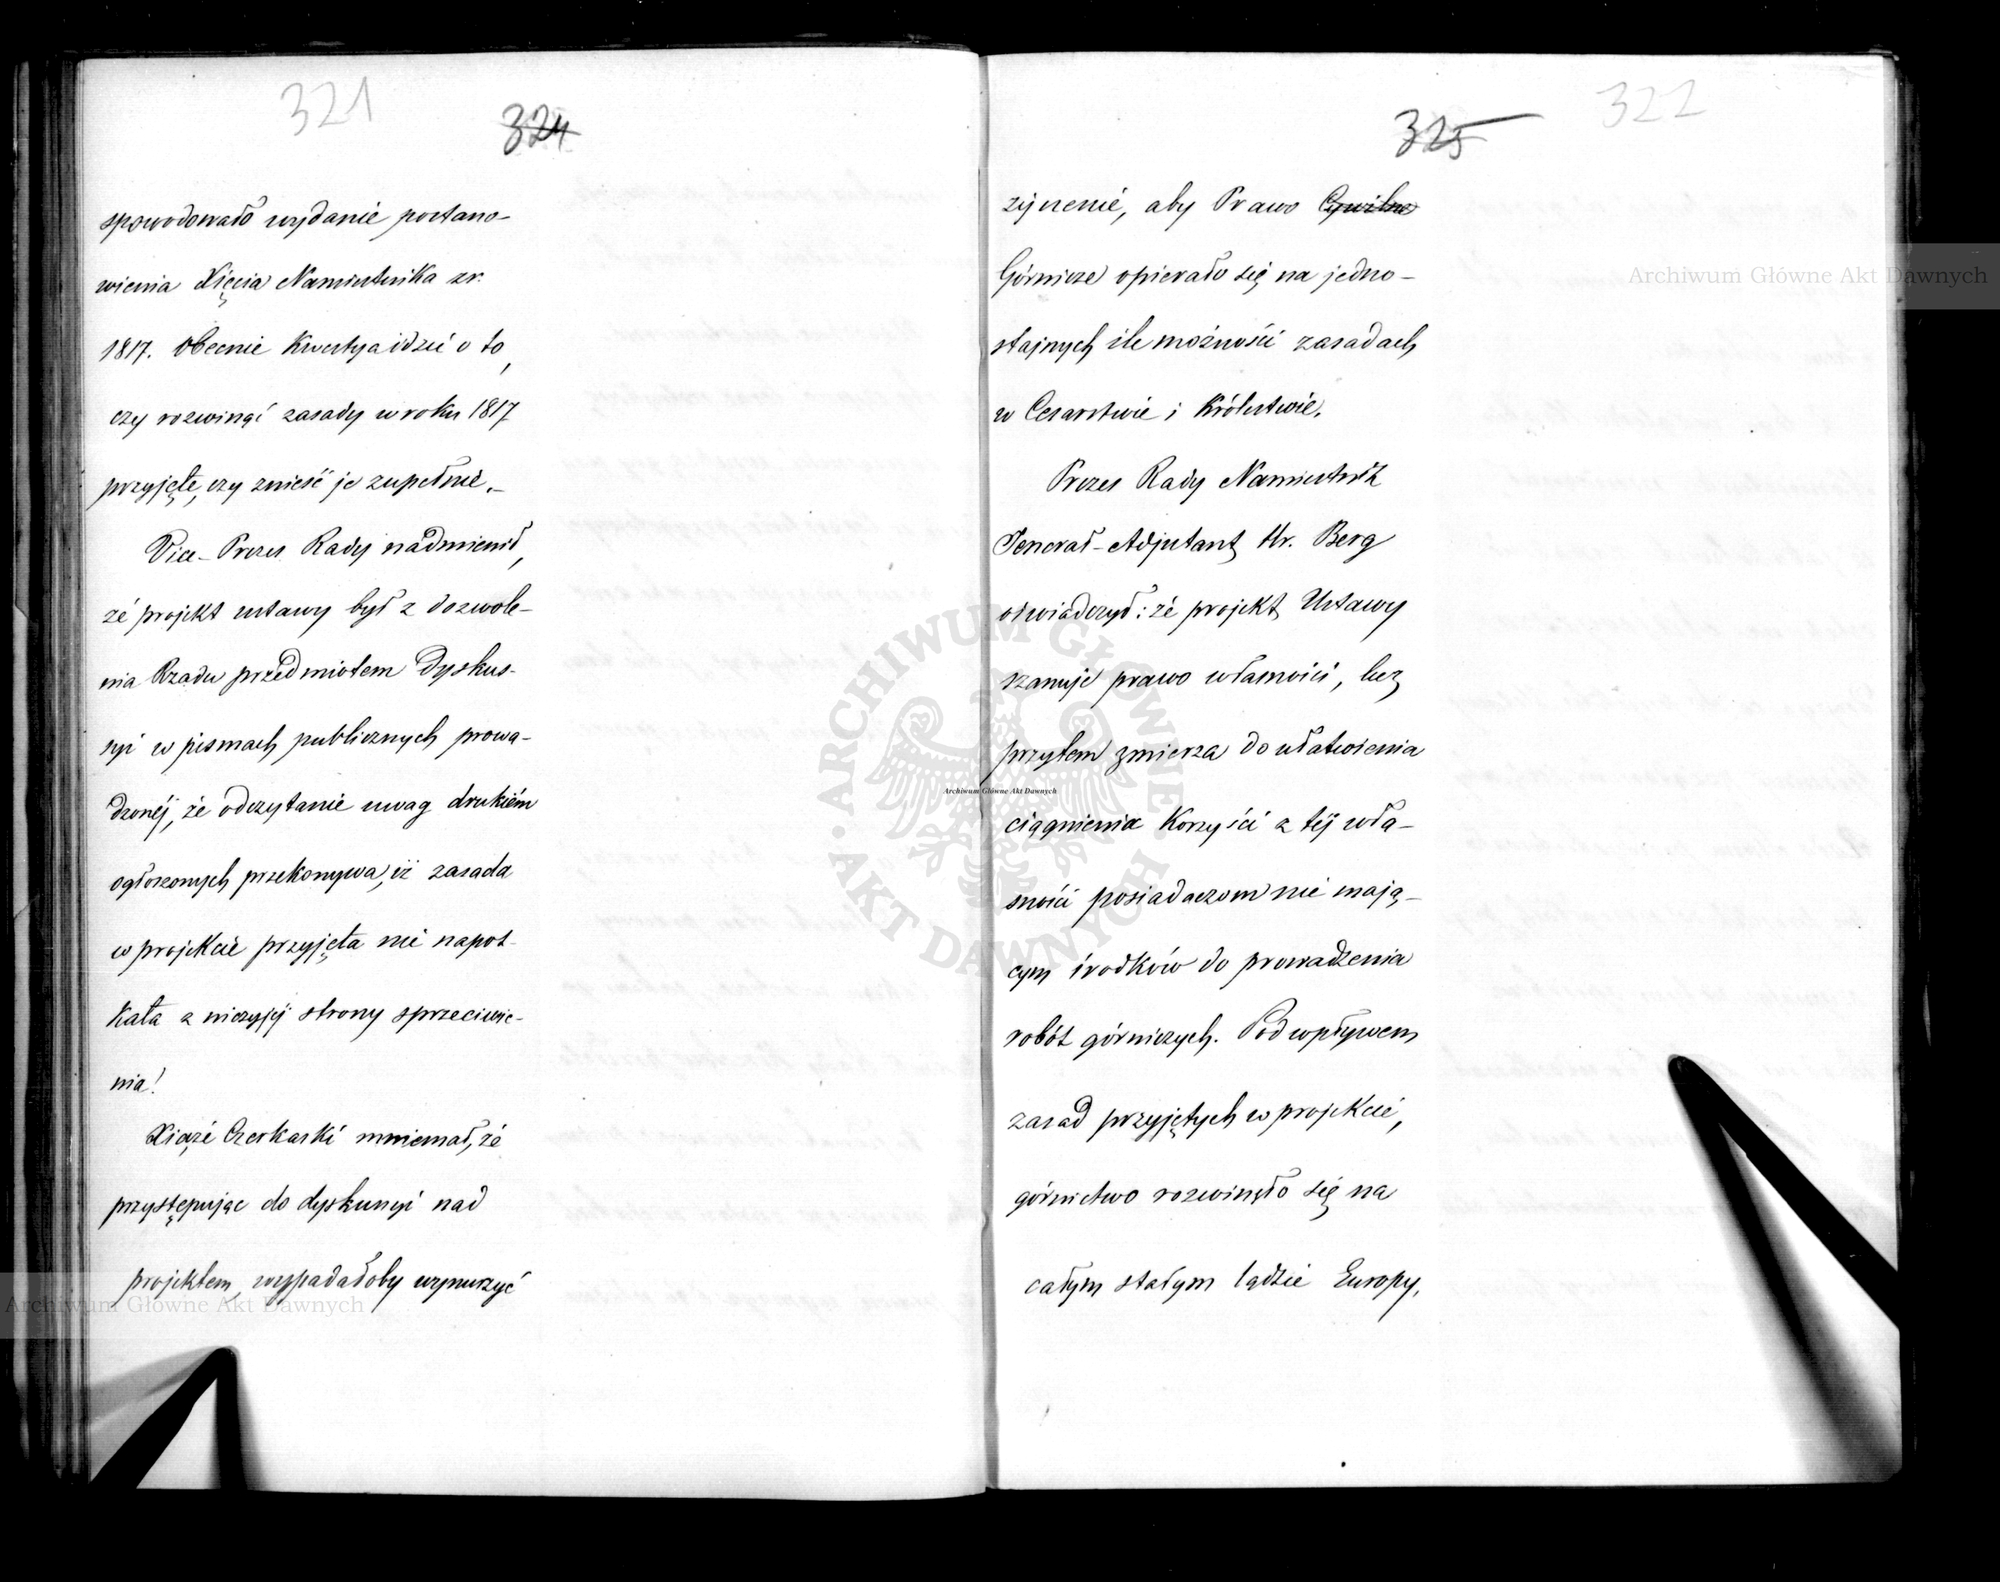 321
324
spowodowało wydanie postano-
wienia Xięcia Namiestnika z r.
1817. Obecnie kwestya idzie o to,
czy rozwinąć zasady w roku 1817
przyjęte, czy znieść je zupełnie.-
Vice-Prezes Rady nadmienił,
że projekt ustawy był z dozwole-
nia Rządu przedmiotem dyskus-
syi w pismach publicznych prowa-
dzonéj, że odczytanie uwag drukiém
ogłoszonych przekonywa, iż zasada
w projekcie przyjęta nie napot-
kała z niczyjéj strony sprzeciwie-
nia!
Xiąże Czerkaski mniemał, że
przystępując do dyskussyi nad
projektem, wypadałoby wynurzyć
322
325
życzenie, aby Prawo Cywilne
Górnicze opierało się na jedno-
stajnych ile możności zasadach
w Cesarstwie i Królestwie.
Prezes Rady Namiestnik
Jenerał-Adjutant Hr. Berg
oświadczył: że projekt Ustawy
szanuje prawo własności, lecz
przytem zmierza do ułatwienia
ciągnienia korzyści z téj wła-
sności posiadaczom nie mają-
cym środków do prowadzenia
robót górniczych. Pod wpływem
zasad przyjętych w projekcie,
górnictwo rozwinęło się na
całym stałym lądzie Europy,
Archiwum Główne Akt Dawnych
ARCHIWUM GŁÓWNE
AKT DAWNYCH
Archiwum Główne Akt Dawnych
Archiwum Główne Akt Dawnych